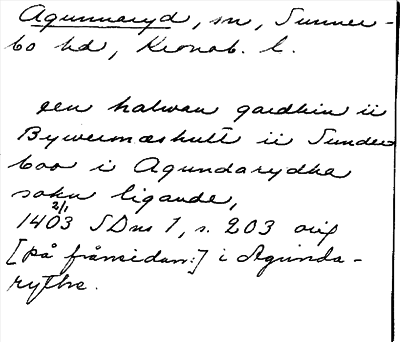 Agunnaryd, sn, Sunner-
bo hd, Kronob. l.
een halwan gardhin ii
Bywermæshult ii Sunder
boo i Agundarydha
sokn ligande,
1403 2/1 SDns 1, s. 203 orig
[på frånsidan:] i Agunda-
rythe.